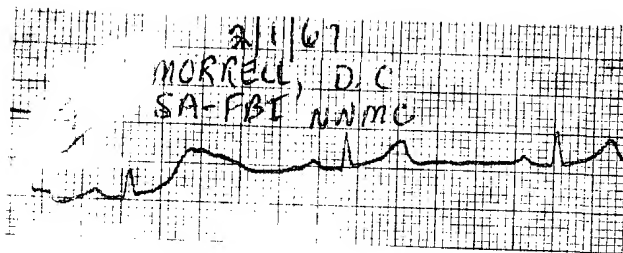 2/1/67
MORRELL, D.C
SA-FBI NNMC